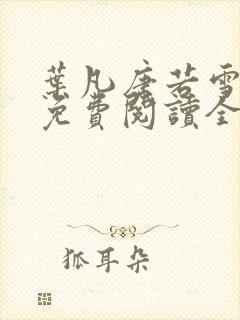 葉凡唐若雪
免費閱讀全
狐耳朵